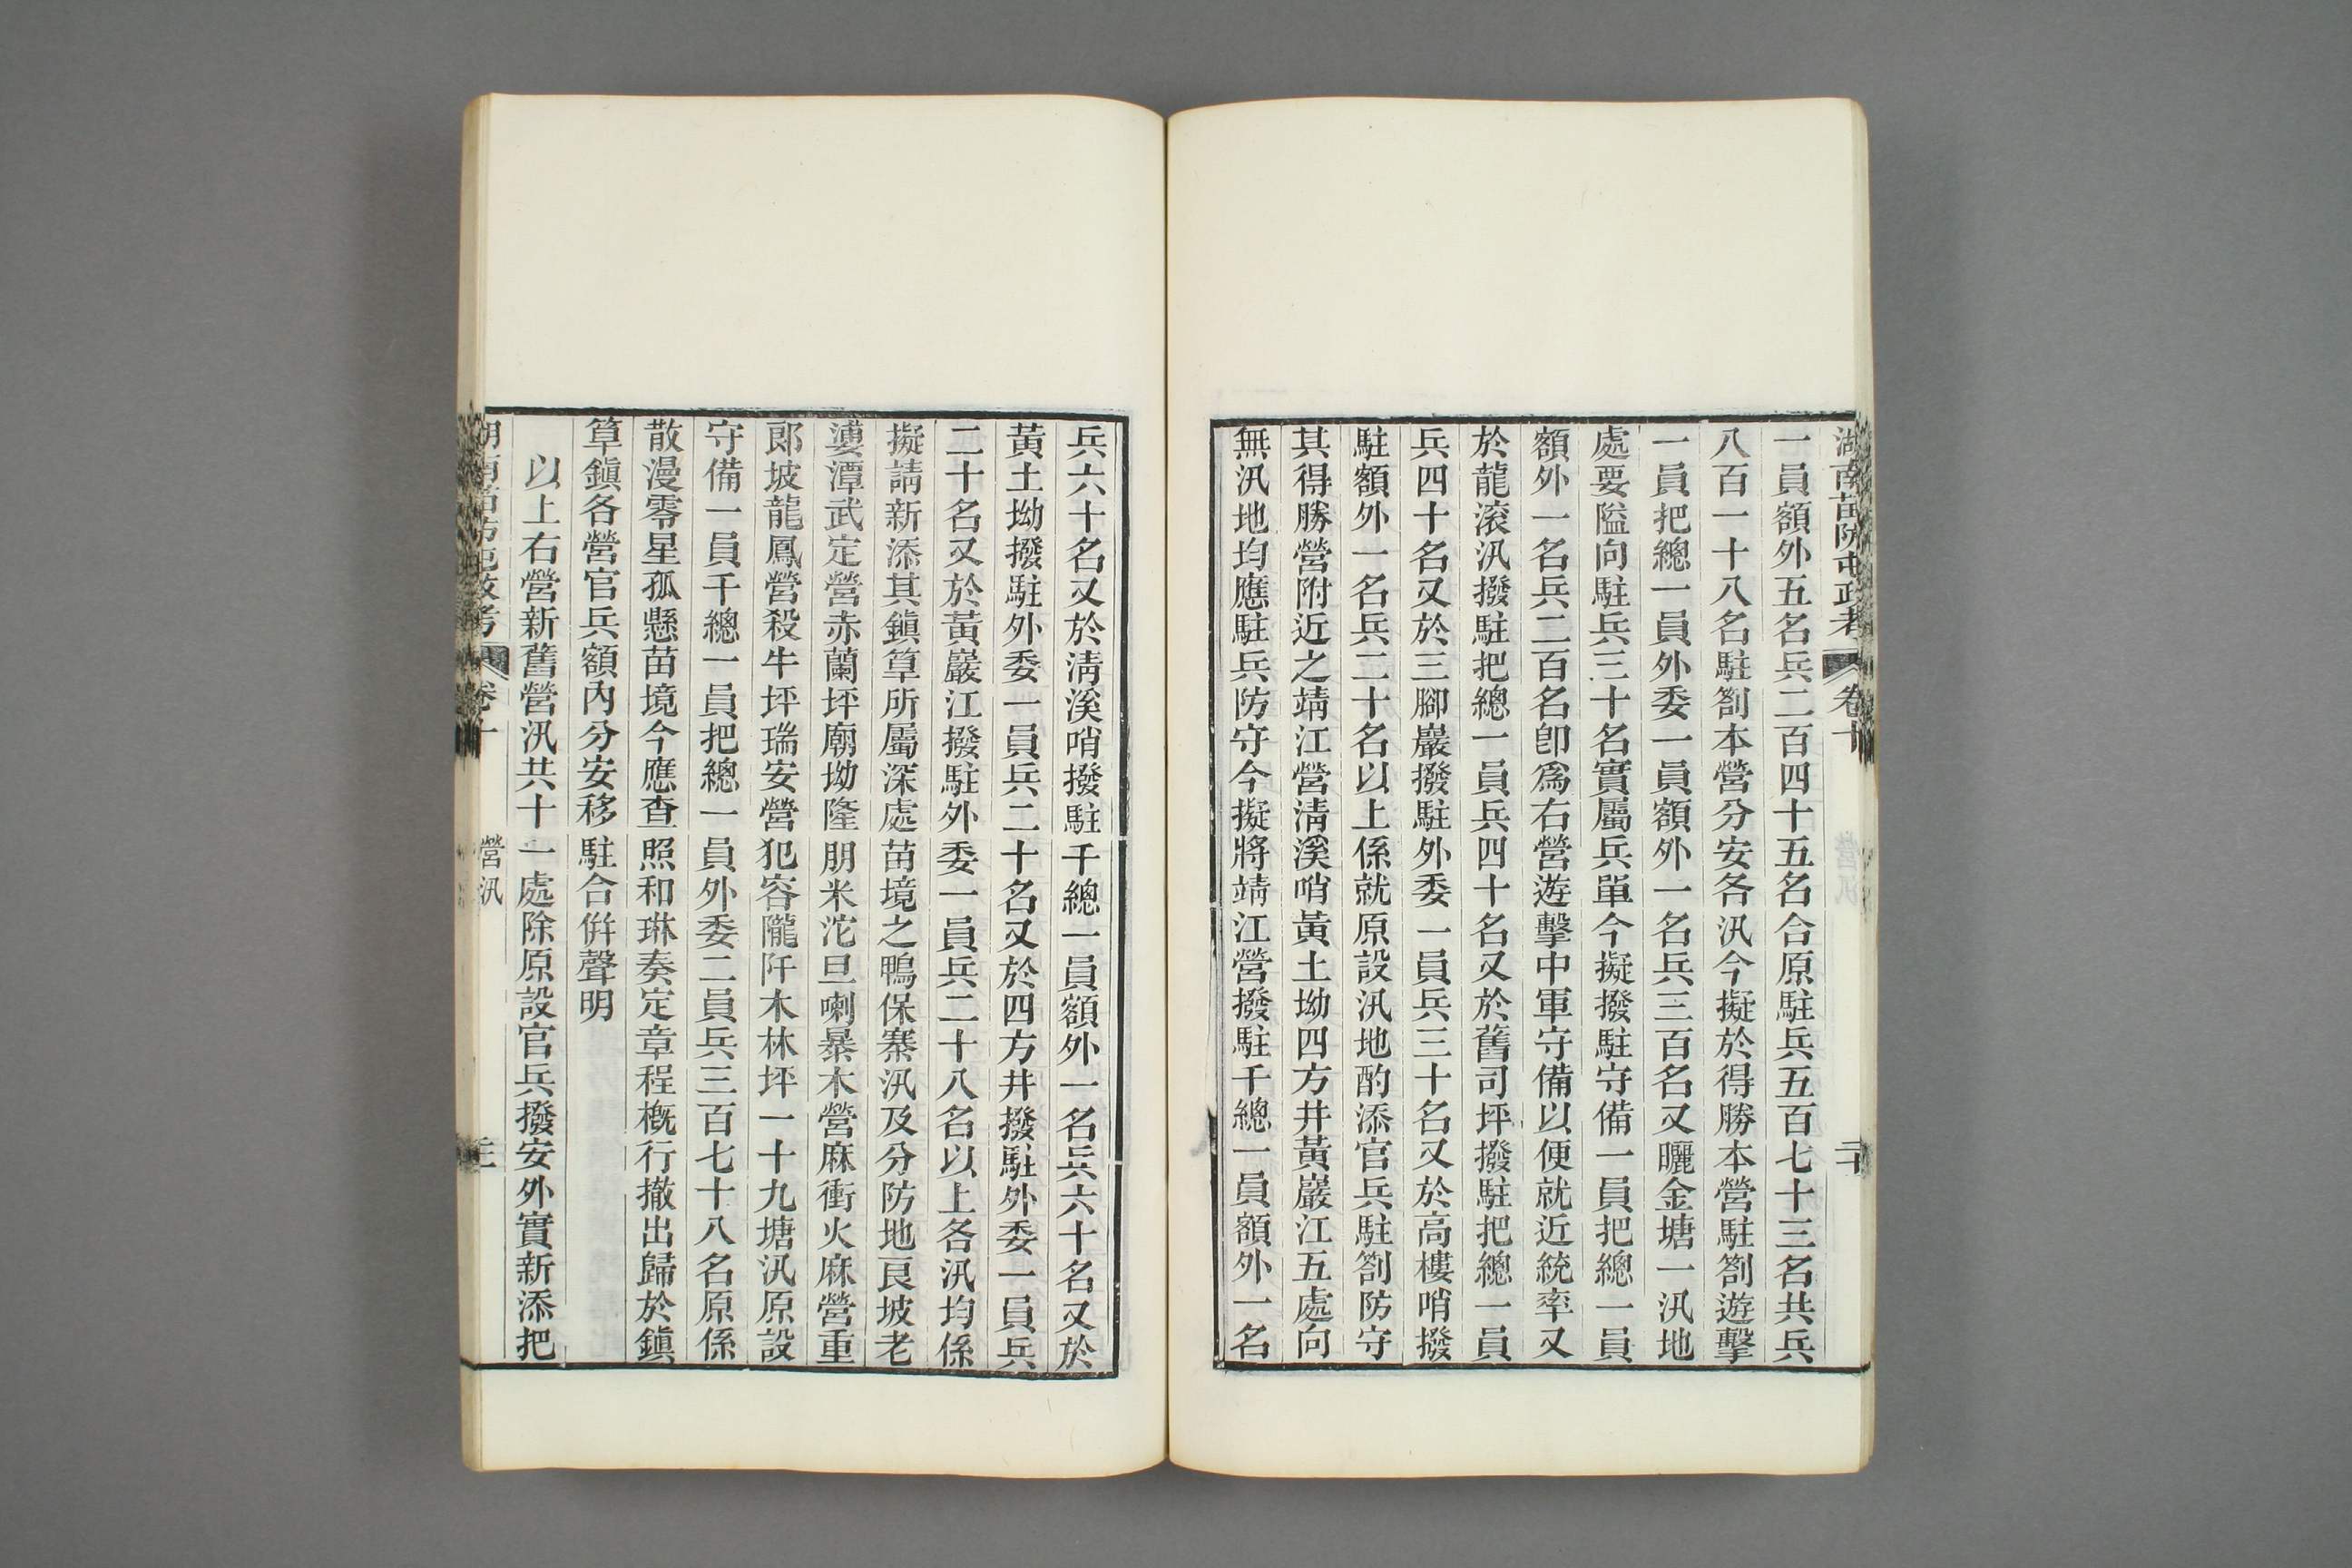 湖南苗防屯政考 卷十 二十
一員額外五名兵二百四十五名合原駐兵五百七十三名共兵
八百一十八名駐劄本營分安各汛今擬於得勝本營駐劄遊擊
一員把總一員外委一員額外一名兵三百名又曬金塘一汛地
處要隘向駐兵三十名實屬兵單今擬撥駐守備一員把總一員
額外一名兵二百名卽爲右營遊擊中軍守備以便就近統率又
於龍滚汛撥駐把總一員兵四十名又於舊司坪撥駐把總一員
兵四十名又於三腳巖撥駐外委一員兵三十名又於高樓哨撥
駐額外一名兵二十名以上係就原設汛地酌添官兵駐劄防守
其得勝營附近之靖江營清溪哨黃土坳四方井黃巖江五處向
無汛地均應駐兵防守今擬將靖江營撥駐千總一員額外一名
兵六十名又於清溪哨撥駐千總一員額外一名兵六十名又於
黃土坳撥駐外委一員兵二十名又於四方井撥駐外委一員兵
二十名又於黃巖江撥駐外委一員兵二十八名以上各汛均係
擬請新添其鎮筸所屬深處苗境之鴨保寨汛及分防地良坡老
㵛潭武定營赤蘭坪廟坳隆朋米沱旦喇暴木營麻衝火麻營重
郞坡龍鳳營殺牛坪瑞安營犯容隴阡木林坪一十九塘汛原設
守備一員千總一員把總一員外委二員兵三百七十八名原係
散漫零星孤懸苗境今應查照和琳奏定章程槪行撤出歸於鎮
筸鎮各營官兵額內分安移駐合倂聲明
以上右營新舊營汛共十一處除原設官兵撥安外實新添把
湖南苗防屯政考 卷十 營汛